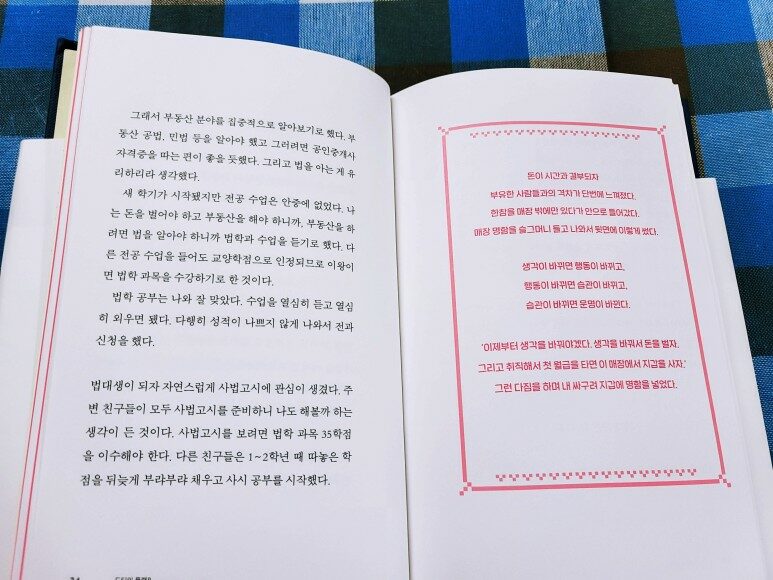 그래서 부동산 분야를 집중적으로 알아보기로 했다. 부
동산 공법, 민법 등을 알아야 했고 그러려면 공인중개사
자격증을 따는 편이 좋을 듯했다. 그리고 법을 아는 게 유
리하리라 생각했다.
새 학기가 시작됐지만 전공 수업은 안중에 없었다. 나
는 돈을 벌어야 하고 부동산을 해야 하니까, 부동산을 하
려면 법을 알아야 하니까 법학과 수업을 듣기로 했다. 다
른 전공 수업을 들어도 교양학점으로 인정되므로 이왕이
면 법학 과목을 수강하기로 한 것이다.
법학 공부는 나와 잘 맞았다. 수업을 열심히 듣고 열심
히 외우면 됐다. 다행히 성적이 나쁘지 않게 나와서 전과
신청을 했다.
법대생이 되자 자연스럽게 사법고시에 관심이 생겼다. 주
변 친구들이 모두 사법고시를 준비하니 나도 해볼까 하는
생각이 든 것이다. 사법고시를 보려면 법학 과목 35학점
을 이수해야 한다. 다른 친구들은 1~2학년 때 따놓은 학
점을 뒤늦게 부랴부랴 채우고 사시 공부를 시작했다.
돈이 시간과 결부되자
부유한 사람들과의 격차가 단번에 느껴졌다.
한참을 매장 밖에만 있다가 안으로 들어갔다.
매장 명함을 슬그머니 들고 나와서 뒷면에 이렇게 썼다.
생각이 바뀌면 행동이 바뀌고,
행동이 바뀌면 습관이 바뀌고,
습관이 바뀌면 운명이 바뀐다.
'이제부터 생각을 바꿔야겠다. 생각을 바꿔서 돈을 벌자.
그리고 취직해서 첫 월급을 타면 이 매장에서 지갑을 사자.'
그런 다짐을 하며 내 싸구려 지갑에 명함을 넣었다.